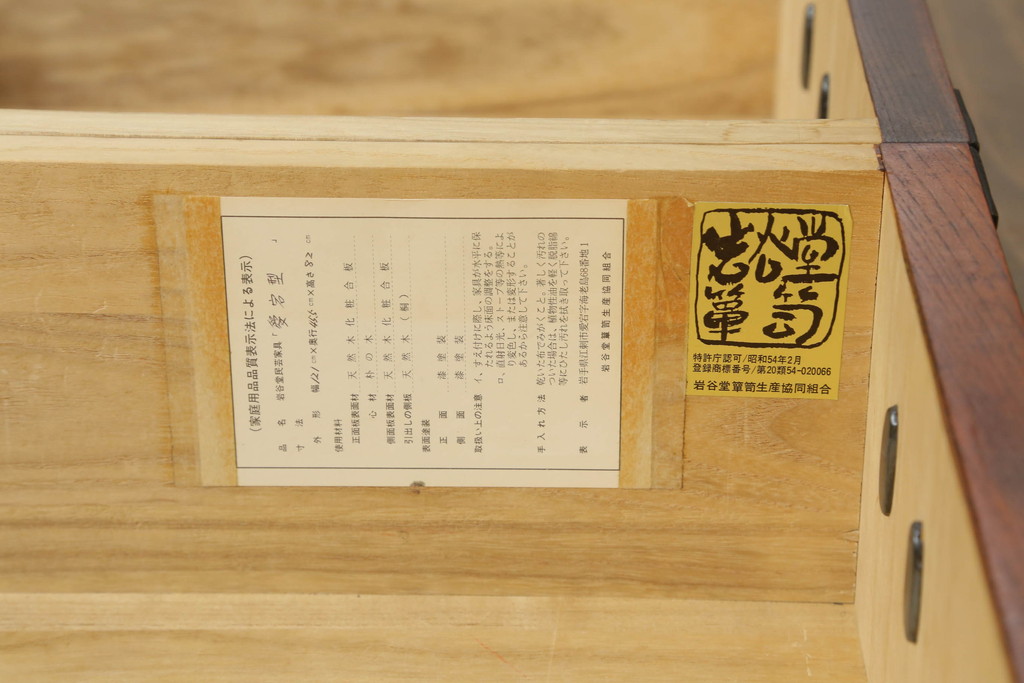 (家庭用品品質表示法による表示)
品名 岩谷堂民芸家具「愛宕型」
寸法
外形 幅121cm×奥行45.5cm×高さ82cm
使用材料
正面板表面材 天然木化粧合板
心材 朴の木
側面板表面材 天然木化粧合板
引出しの側板 天然木(桐)
表面塗装
正面 漆塗装
側面 漆塗装
取扱い上の注意 イ、すえ付けに際し、家具が水平に保
たれるよう床面の調整をする。
ロ。直射日光、ストーブ等の熱等によ
り変色し、または変形することが
あるから注意して下さい。
手入れ方法 乾いた布でみがくこと。著しく汚れの
ついた場合は、植物性油を軽く脱脂綿
等にひたし汚れを拭き取って下さい。
表示者 岩手県江刺市愛宕字海老島68番地1
岩谷堂簞笥生産協同組合
岩谷堂
簞笥
特許庁認可/昭和54年2月
登録商標番号/第20類54-020066
岩谷堂簞笥生産協同組合